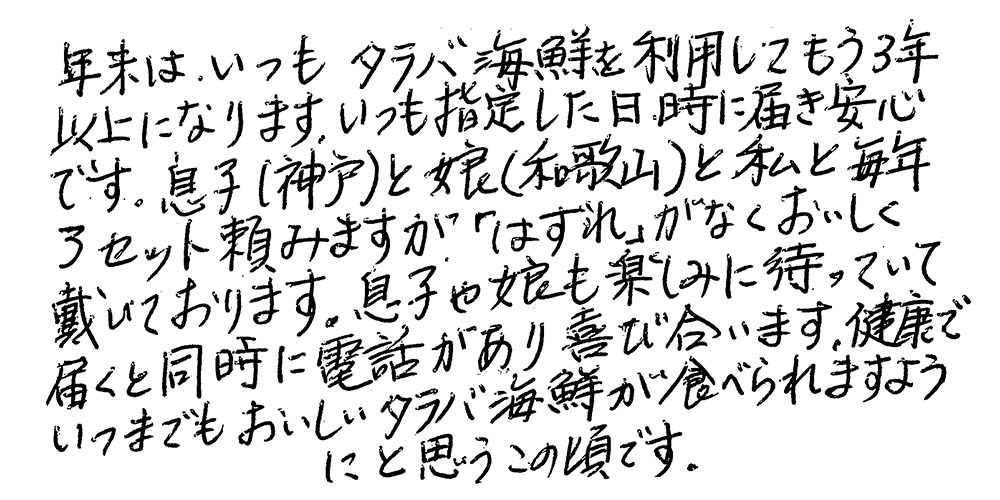 年末は、いつも タラバ海鮮を利用してもう3年
以上になります。いつも指定した日時に届き安心
です。息子(神戸)と娘(和歌山)と私と毎年
3セット頼みますが「はずれ」がなくおいしく
戴いております。息子や娘も楽しみに待っていて
届くと同時に電話があり喜び合います。健康で
いつまでもおいしいタラバ海鮮が食べられますよう
にと思うこの頃です。